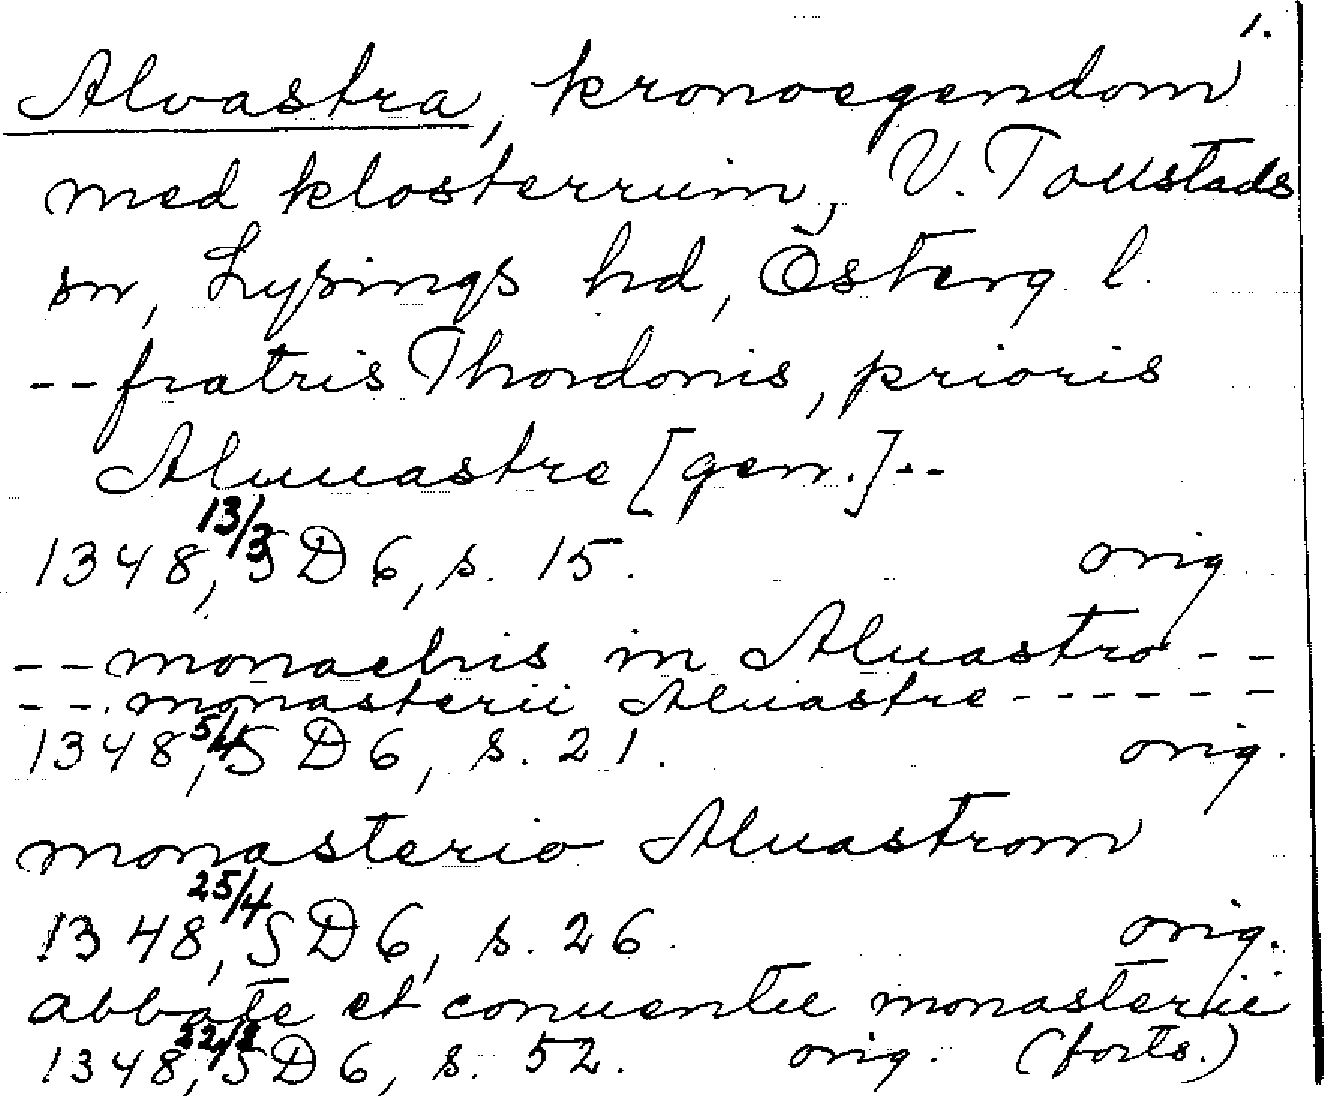 1.
Alvastra, kronoegendom
med klosterruin, V. Tollstads
sn, Lysings hd, Österg l.
-- fratris Thordonis, prioris
Aluuastre [gen.] --
1348 13/3, SD 6, s. 15. orig
-- monachis in Aluastro --
-- monasterii Aluastre ------
1348 5/4, SD 6, s. 21. orig.
monasterio Aluastrom
1348 25/4, SD 6, s. 26. orig.
abbate et conuentu monasterii
1348, SD 6, s. 52. orig. (forts.)